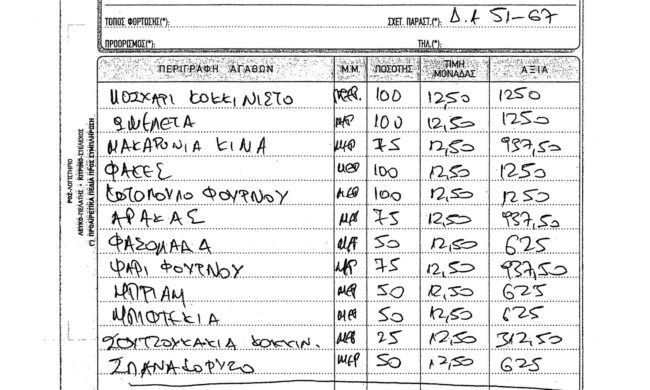 ΤΟΠΟΣ ΦΟΡΤΩΣΗΣ(*): ΣΧΕΤ. ΠΑΡΑΣΤ.(*): Δ.Α 51-67
ΠΡΟΟΡΙΣΜΟΣ(*): ΤΗΛ.(*):
ΠΕΡΙΓΡΑΦΗ ΑΓΑΘΩΝ Μ.Μ. ΠΟΣΟΤΗΣ ΤΙΜΗ ΜΟΝΑΔΑΣ ΑΞΙΑ
ΜΟΣΧΑΡΙ ΚΟΚΚΙΝΙΣΤΟ ΜΕΡ. 100 12,50 1250
ΟΜΕΛΕΤΑ ΜΕΡ 100 12,50 1250
ΜΑΚΑΡΟΝΙΑ ΚΙΜΑ ΜΕΡ 75 12,50 937,50
ΦΑΚΕΣ ΜΕΡ 100 12,50 1250
ΚΟΤΟΠΟΥΛΟ ΦΟΥΡΝΟΥ ΜΕΡ 100 12,50 1250
ΑΡΑΚΑΣ ΜΕΡ 75 12,50 937,50
ΦΑΣΟΛΑΔΑ ΜΕΡ 50 12,50 625
ΨΑΡΙ ΦΟΥΡΝΟΥ ΜΕΡ 75 12,50 937,50
ΜΠΡΙΑΜ ΜΕΡ 50 12,50 625
ΜΠΙΦΤΕΚΙΑ ΜΕΡ 50 12,50 625
ΣΟΥΤΖΟΥΚΑΚΙΑ ΚΟΚΚΙΝ. ΜΕΡ 25 12,50 312,50
ΣΠΑΝΑΚΟΡΥΖΟ ΜΕΡ 50 12,50 625
(*) ΠΡΟΑΙΡΕΤΙΚΑ ΠΕΔΙΑ ΠΡΟΣ ΣΥΜΠΛΗΡΩΣΗ